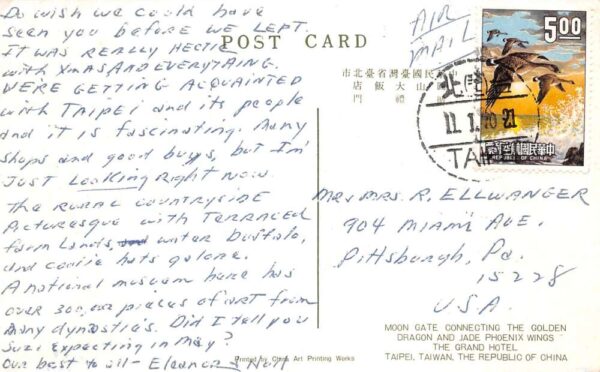 Do wish we could have
seen you before we LEFT.
IT WAS REALLY HECTIC
with XMAS AND EVERYTHING.
WE'RE GETTING ACQUAINTED
with TAIPEI and its people
and it is fascinating. Many
shops and good buys, but I'm
JUST Looking Right now.
The RURAL countryside
Picturesque with Terraced
farm Lands, water buffalo,
and coolie hats galore.
A national museum here has
over 300,000 pieces of ART from
many dynastia's. Did I tell you
Suzi expecting in May?
Our best to all - Eleanor & Nott
POST CARD
AIR
MAIL
中華民國臺灣省臺北市
圓山大飯店
禮門
5.00
中華民國郵票
REPUBLIC OF CHINA
11.1.70.21
TAI
MR & MRS. R. ELLWANGER
904 MIAMI AVE.
Pittsburgh, Pa.
15228
U.S.A.
MOON GATE CONNECTING THE GOLDEN
DRAGON AND JADE PHOENIX WINGS
THE GRAND HOTEL
TAIPEI, TAIWAN, THE REPUBLIC OF CHINA
Printed by China Art Printing Works